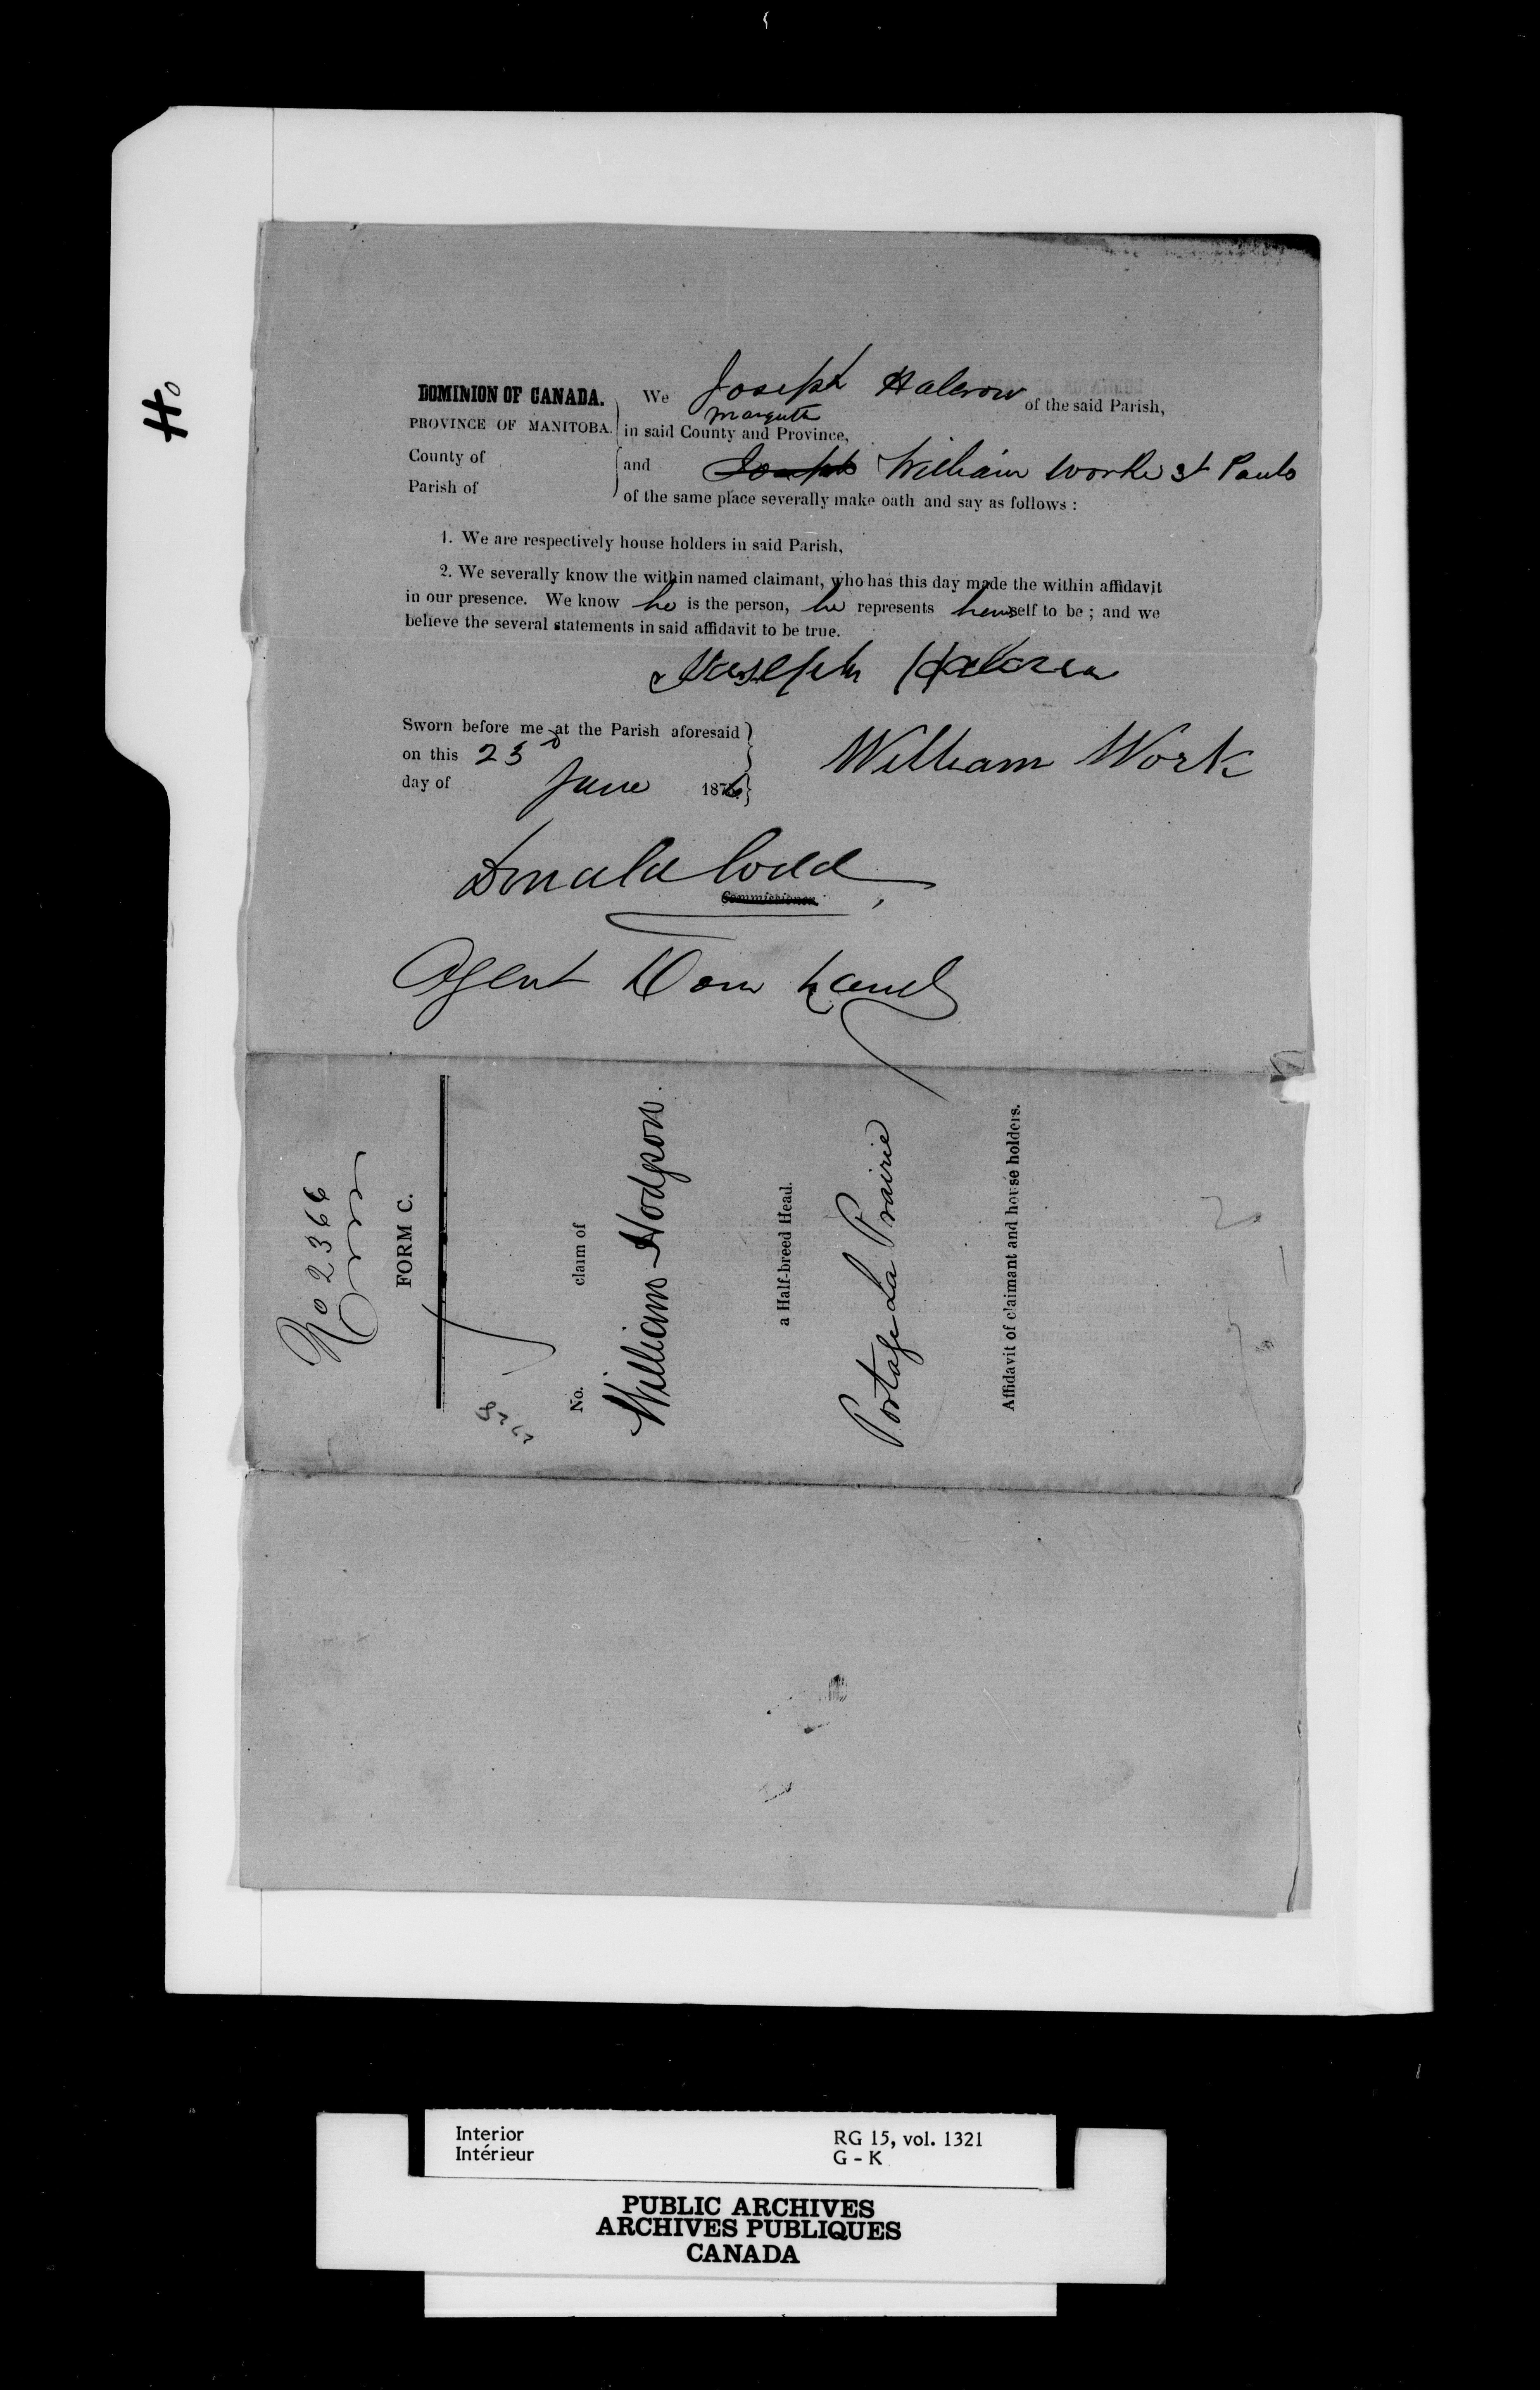 Ho
DOMINION OF CANADA.
PROVINCE OF MANITOBA.
County of
Parish of
We Joseph Halcrow of the said Parish,
Marquette
in said County and Province,
and Joseph William Work St Pauls
of the same place severally make oath and say as follows :
1. We are respectively house holders in said Parish,
2. We severally know the within named claimant, who has this day made the within affidavit
in our presence. We know he is the person, he represents himself to be ; and we
believe the several statements in said affidavit to be true.
Joseph Halcrow
Sworn before me at the Parish aforesaid
on this 23
day of June 1876
William Work
Donald Codd
Commissioner.
Agent Dom Lands
No 2366
FORM C.
No. claim of
William Hodgson
a Half-breed Head.
Portage La Prairie
Affidavit of claimant and house holders.
Interior
Intérieur
RG 15, vol. 1321
G - K
PUBLIC ARCHIVES
ARCHIVES PUBLIQUES
CANADA